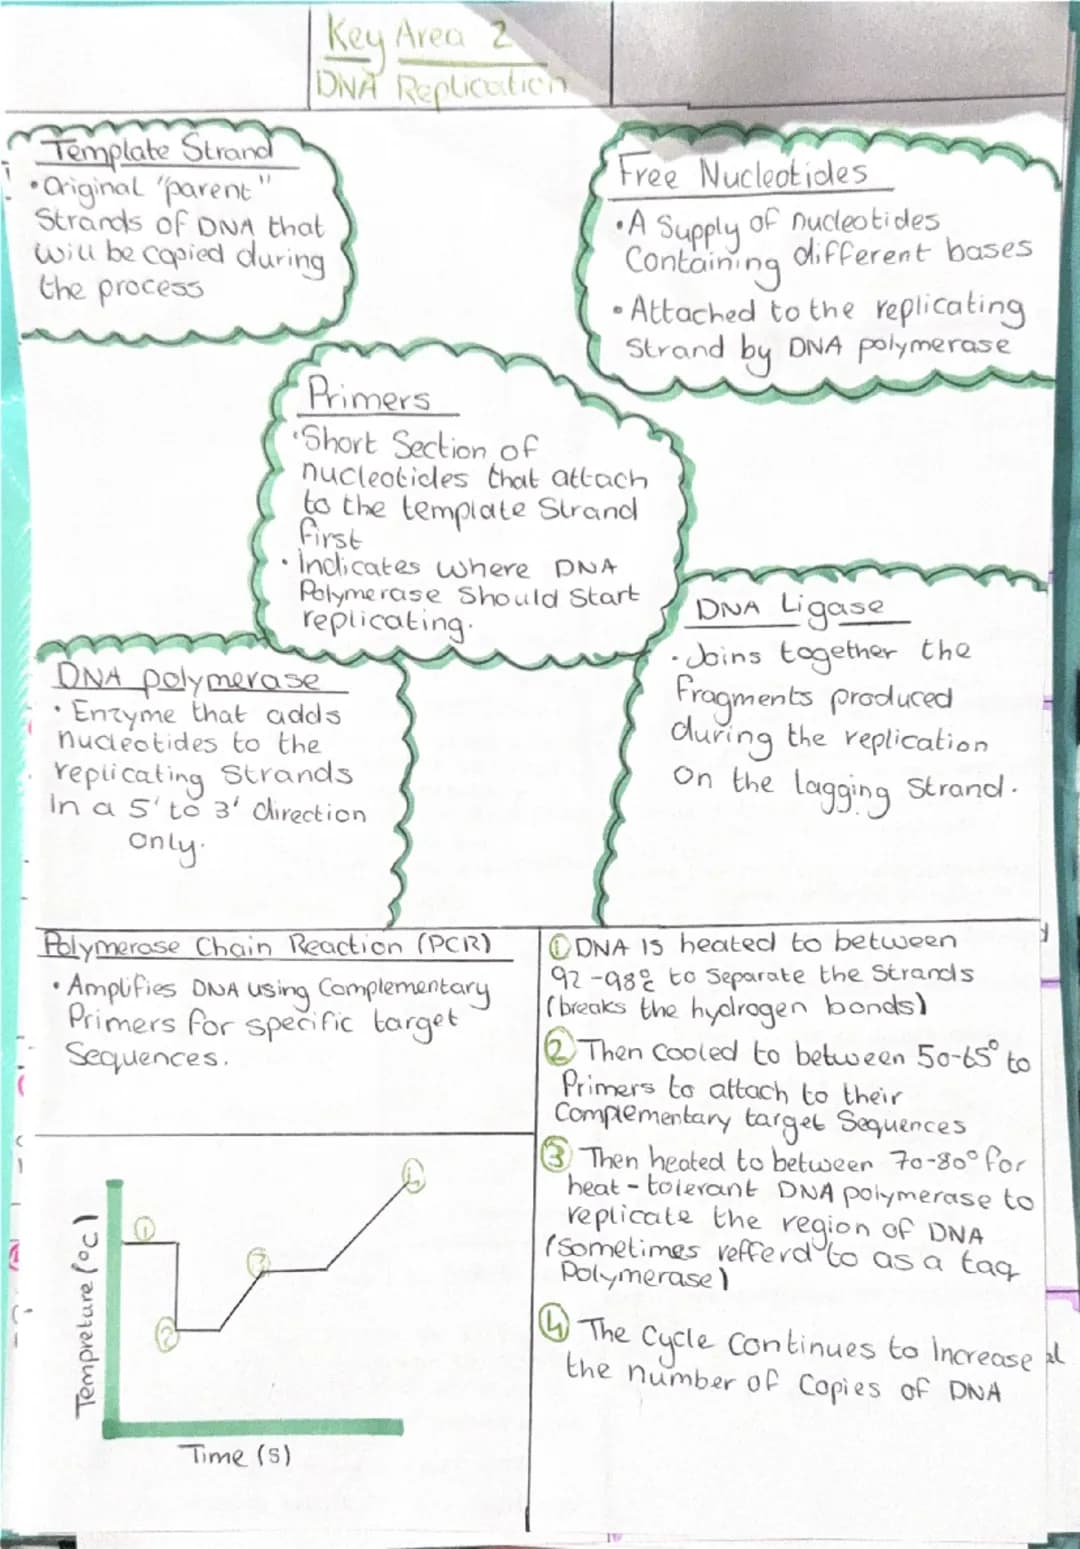 Key Area 2
DNA Replication
Template Strand
• Original "parent"
Strands of DNA that
will be copied during
the process
Free Nucleotides
• A Supply of nucleotides
Containing different bases
• Attached to the replicating
Strand by DNA polymerase
Primers
• Short Section of
nucleotides that attach
to the template Strand
first
• Indicates where DNA
Polymerase Should Start
replicating.
DNA Ligase
• Joins together the
fragments produced
during the replication
on the lagging Strand.
DNA polymerase
• Enzyme that adds
nucleotides to the
replicating Strands
In a 5' to 3' direction
only.
Polymerase Chain Reaction (PCR)
• Amplifies DNA using Complementary
Primers for specific target
Sequences.
① DNA is heated to between
92-98°C to Separate the Strands
(breaks the hydrogen bonds)
② Then Cooled to between 50-65° to
Primers to attach to their
Complementary target Sequences
③ Then heated to between 70-80° for
heat-tolerant DNA polymerase to
replicate the region of DNA
(Sometimes refferd to as a taq
Polymerase)
④ The Cycle Continues to Increase
the number of Copies of DNA
Tempreture (°C)
①
②
③
④
Time (s)